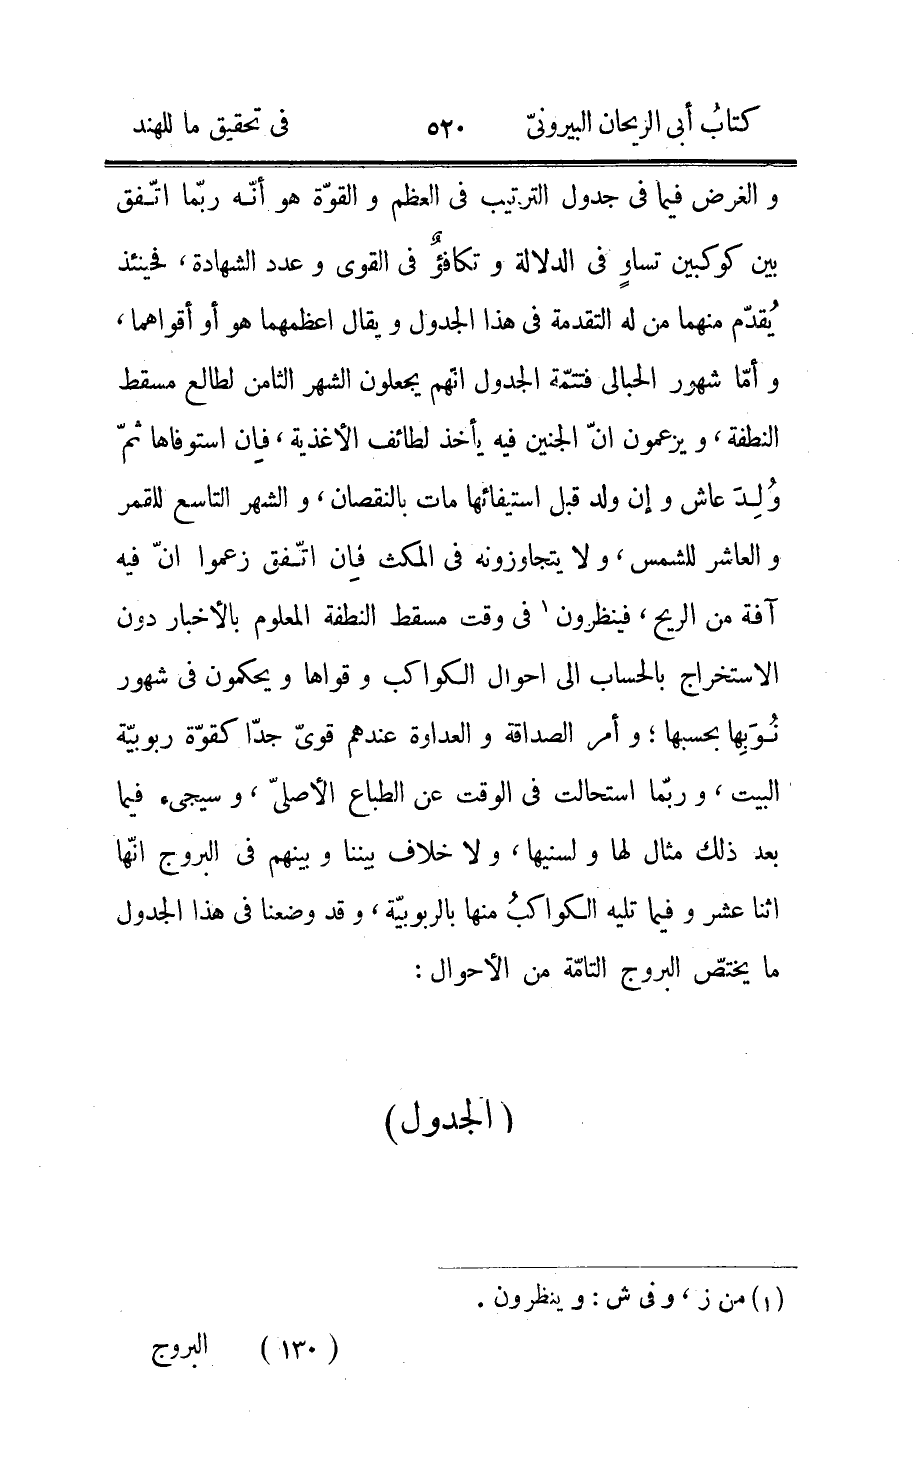 كتابُ أبى الريحان البيرونىّ ٥٢٠ فى تحقيق ما للهند
و الغرض فيما فى جدول الترتيب فى العظم و القوّة هو أنّه ربّما اتّفق
بين كوكبين تساوٍ فى الدلالة و تكافؤٌ فى القوى و عدد الشهادة، فحينئذ
يُقدّم منهما من له التقدمة فى هذا الجدول و يقال اعظمهما هو أو أقواهما،
و أمّا شهور الحبالى فتتمّة الجدول انّهم يجعلون الشهر الثامن لطالع مسقط
النطفة، و يزعمون انّ الجنين فيه يأخذ لطائف الأغذية، فإن استوفاها ثمّ
وُلِدَ عاش و إن ولد قبل استيفائها مات بالنقصان، و الشهر التاسع للقمر
و العاشر للشمس، و لا يتجاوزونه فى المكث فإن اتّفق زعموا انّ فيه
آفة من الريح، فينظرون١ فى وقت مسقط النطفة المعلوم بالأخبار دون
الاستخراج بالحساب الى احوال الكواكب و قواها و يحكمون فى شهور
نُوَبِها بحسبها؛ و أمر الصداقة و العداوة عندهم قوىّ جدّا كقوّة ربوبيّة
البيت، و ربّما استحالت فى الوقت عن الطباع الأصلىّ، و سيجىء فيما
بعد ذلك مثال لها و لسنيها، و لا خلاف بيننا و بينهم فى البروج انّها
اثنا عشر و فيما تليه الكواكبُ منها بالربوبيّة، و قد وضعنا فى هذا الجدول
ما يختصّ البروج التامّة من الأحوال :
(الجدول)
(١) من ز، و فى ش : و ينظرون .
(١٣٠) البروج